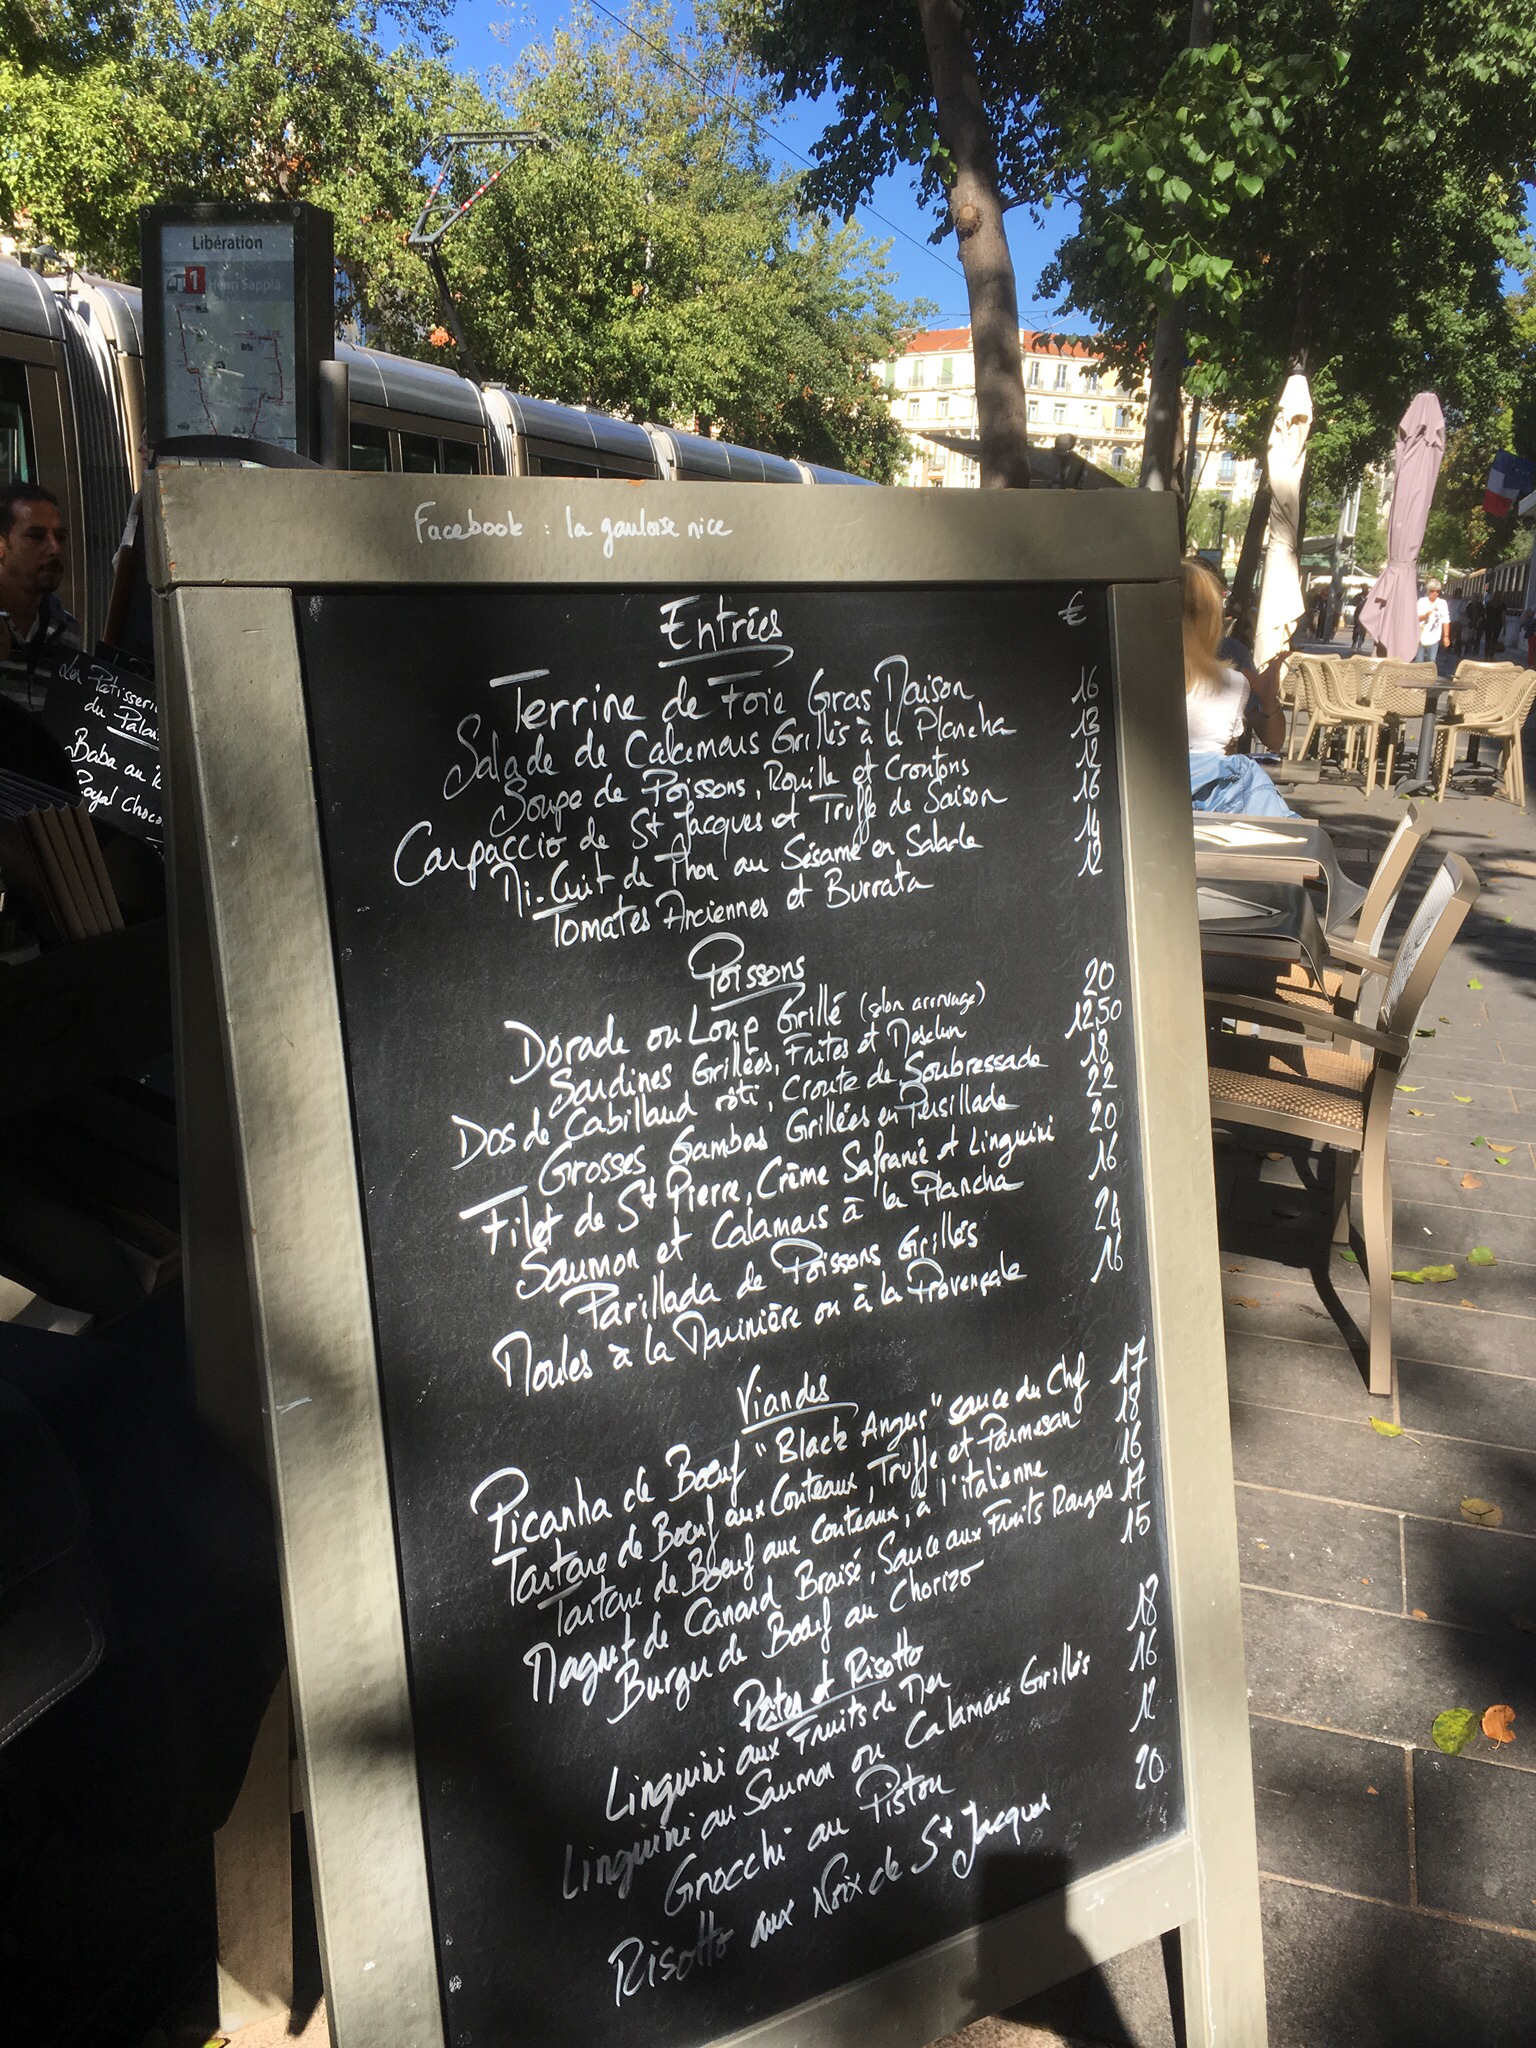 Libération
1 Henri Sappia
Facebook : la gauloise nice
Entrées €
Terrine de Foie Gras Maison 16
Salade de Calamars Grillés à la Plancha 13
Soupe de Poissons, Rouille et Croutons 12
Carpaccio de St Jacques et Truffe de Saison 16
Mi-Cuit de Thon au Sésame en Salade 14
Tomates Anciennes et Burrata 12
Poissons
Dorade ou Loup Grillé (selon arrivage) 20
Sardines Grillées, Frites et Mesclun 12,50
Dos de Cabillaud rôti, Croute de Soubressade 18
Grosses Gambas Grillées en Persillade 22
Filet de St Pierre, Crème Safranée et Linguini 20
Saumon et Calamars à la Plancha 16
Parillada de Poissons Grillés 24
Moules à la Marinière ou à la Provençale 16
Viandes
Picanha de Bœuf "Black Angus" sauce du Chef 17
Tartare de Bœuf aux Couteaux, Truffe et Parmesan 18
Tartare de Bœuf aux Couteaux, à l'italienne 16
Magret de Canard Braisé, Sauce aux Fruits Rouges 17
Burger de Bœuf au Chorizo 15
Pâtes et Risotto
Linguini aux Fruits de Mer 18
Linguini au Saumon ou Calamars Grillés 16
Gnocchi au Pistou 12
Risotto aux Noix de St Jacques 20
Les Patisseri
du Palai
Baba au
Royal Choco